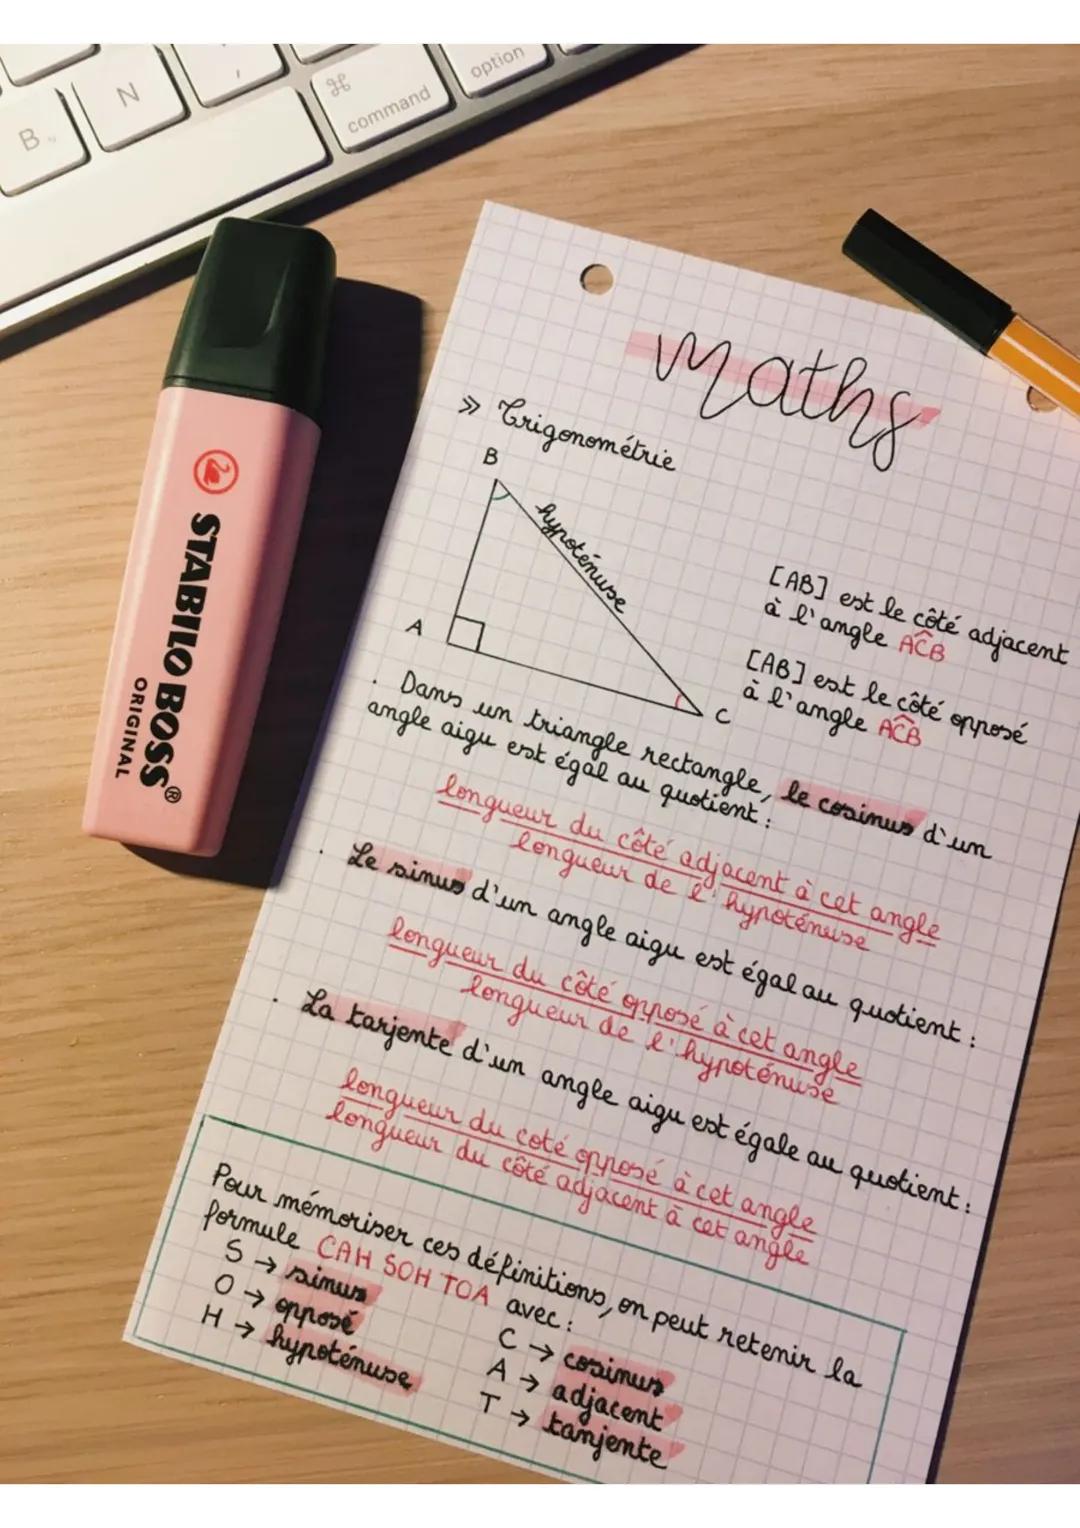 B
N
,
⌘
command
option
STABILO BOSS®
ORIGINAL
Maths
>> Trigonométrie
B
hypoténuse
A
C
[AB] est le côté adjacent
à l'angle ACB
[AB] est le côté opposé
à l'angle ACB
. Dans un triangle rectangle, le cosinus d'un
angle aigu est égal au quotient :
longueur du côté adjacent à cet angle
longueur de l'hypoténuse
. Le sinus d'un angle aigu est égal au quotient :
longueur du côté opposé à cet angle
longueur de l'hypoténuse
. La tarjente d'un angle aigu est égale au quotient :
longueur du coté opposé à cet angle
longueur du côté adjacent à cet angle
Pour mémoriser ces définitions, on peut retenir la
formule CAH SOH TOA avec :
S → sinus
O → opposé
H → hypoténuse
C → cosinus
A → adjacent
T → tanjente